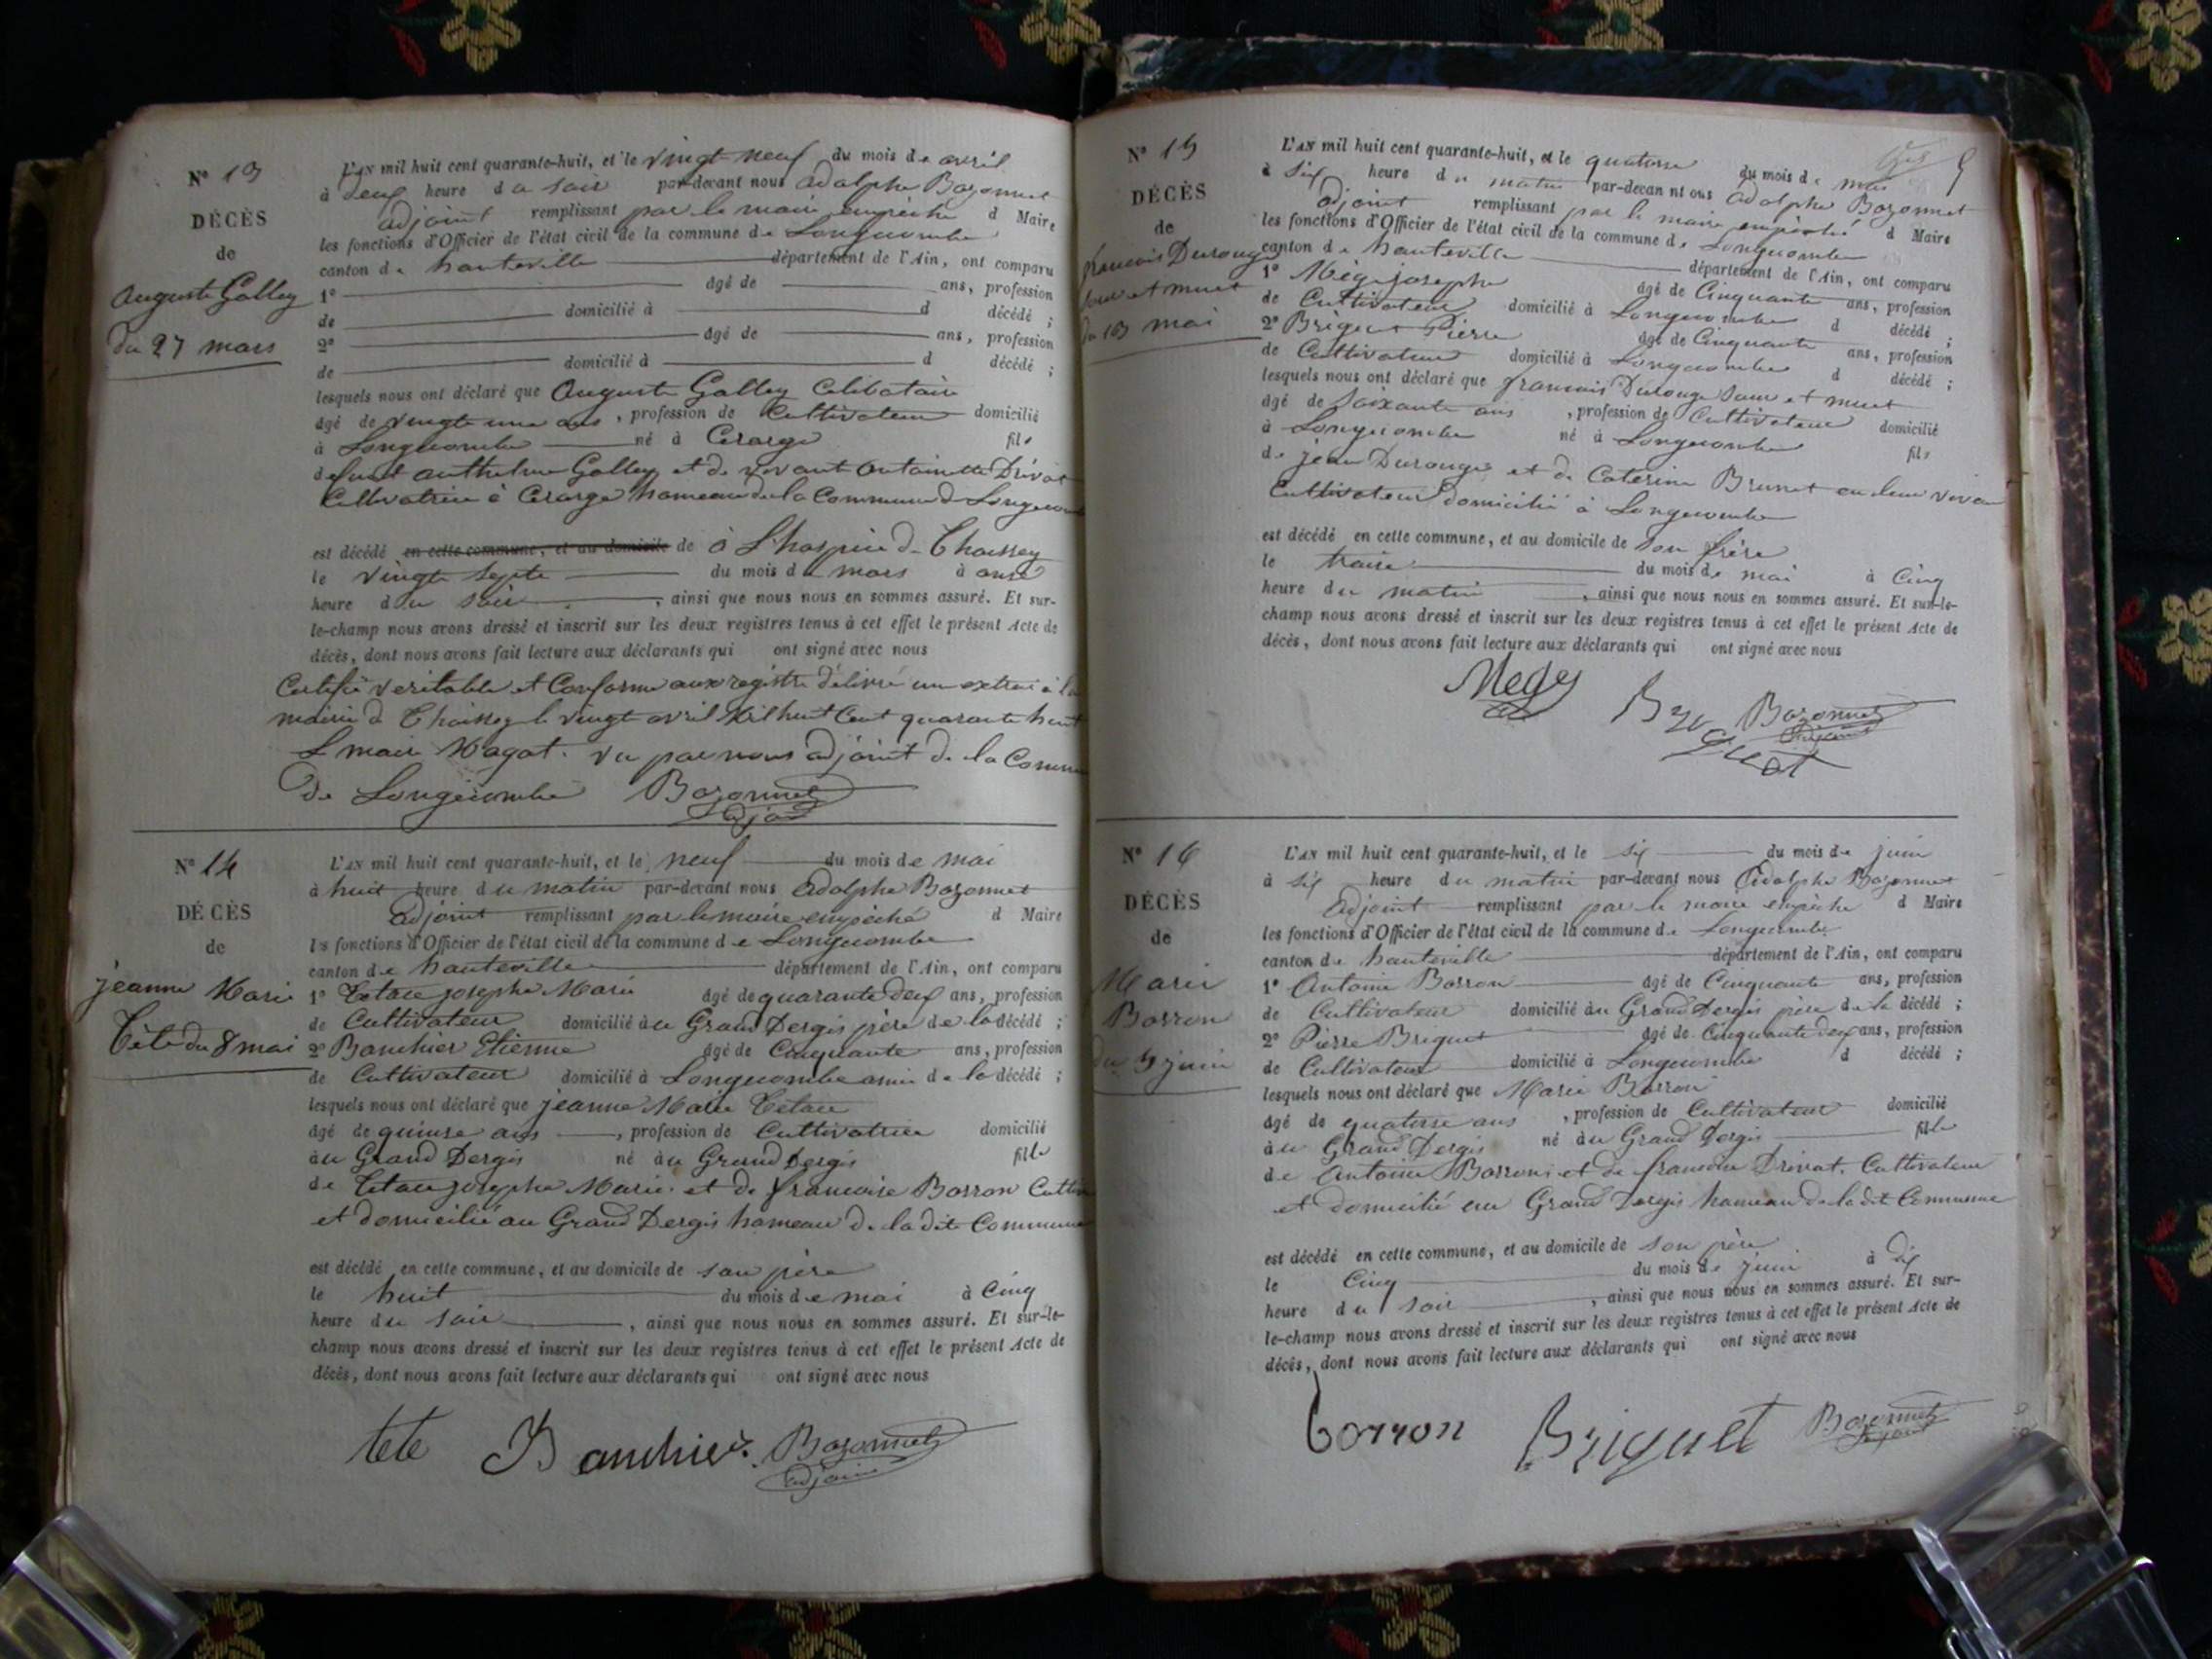 N° 13
DÉCÈS
de
Auguste Golley
du 27 mars
L'AN mil huit cent quarante-huit, et le vingt neuf du mois de avril
à deux heure du soir par-devant nous adolphe Bozonnet
adjoint remplissant par le maire empêché d Maire
les fonctions d'Officier de l'état civil de la commune de Longecombe
canton de hauteville département de l'Ain, ont comparu
1° âgé de ans, profession
de domicilié à d décédé ;
2° âgé de ans, profession
de domicilié à d décédé ;
lesquels nous ont déclaré que Auguste Golley Celibataire
âgé de vingt une ans, profession de Cultivateur domicilié
à Longecombe né à Cerarge fils
defunt anthelme Golley et de vivant antoinette Drivat
Cultivatrice à Cerarge hameau de la Commune d Longecombe
est décédé en cette commune, et au domicile de à L'hospice d. Thoissey
le vingt septe du mois de mars à onse
heure du soir, ainsi que nous nous en sommes assuré. Et sur-
le-champ nous avons dressé et inscrit sur les deux registres tenus à cet effet le présent Acte de
décès, dont nous avons fait lecture aux déclarants qui ont signé avec nous
Certifié veritable et Conforme aux registre délivré un extrai à la
mairie d Thoissey le vingt avril Mil huit Cent quarante huit
L maire Magat. vu par nous adjoint de la Commune
de Longecombe Bozonnet
adjoint
N° 14
DÉCÈS
de
jeanne Marie
Tête du 8 mai
L'AN mil huit cent quarante-huit, et le neuf du mois de mai
à huit heure du matin par-devant nous Adolphe Bozonnet
adjoint remplissant par le maire empêché d Maire
les fonctions d'Officier de l'état civil de la commune de Longecombe
canton de hauteville département de l'Ain, ont comparu
1° Tetaz josephe Marie âgé de quarante deux ans, profession
de Cultivateur domicilié au Grand Dergis père de la décédé ;
2° Banchier Etienne âgé de Cinquante ans, profession
de Cultivateur domicilié à Longecombe amie de la décédé ;
lesquels nous ont déclaré que jeanne Marie Tetaz
âgé de quinse ans, profession de Cultivatrice domicilié
au Grand Dergis né au Grand Dergis fille
de Tetaz josephe Marie et de francoise Borron Cultiv
et domicilié au Grand Dergis hameau d. la dite Commune
est décédé en cette commune, et au domicile de son père
le huit du mois de mai à Cinq
heure du soir, ainsi que nous nous en sommes assuré. Et sur-le-
champ nous avons dressé et inscrit sur les deux registres tenus à cet effet le présent Acte de
décès, dont nous avons fait lecture aux déclarants qui ont signé avec nous
tete Banchier Bozonnet
adjoint
N° 15
DÉCÈS
de
francois Durouge
sour et muet
du 13 mai
L'AN mil huit cent quarante-huit, et le quatorse du mois de mai
à six heure du matin par-devan nt ous adolphe Bozonnet
adjoint remplissant par le maire empêché d Maire
les fonctions d'Officier de l'état civil de la commune de Longecombe
canton de hauteville département de l'Ain, ont comparu
1° Mége josephe âgé de Cinquante ans, profession
de Cultivateur domicilié à Longecombe d décédé ;
2° Briguet Pierre âgé de Cinquante ans, profession
de Cultivateur domicilié à Longecombe d décédé ;
lesquels nous ont déclaré que francois Durouge sour et muet
âgé de soixante ans, profession de Cultivateur domicilié
à Longecombe né à Longecombe fils
de jean Durouge et de Caterine Brunet en leur vivan
Cultivateur domicilié à Longecombe
est décédé en cette commune, et au domicile de son frère
le traise du mois de mai à Cinq
heure du matin, ainsi que nous nous en sommes assuré. Et sur-le-
champ nous avons dressé et inscrit sur les deux registres tenus à cet effet le présent Acte de
décès, dont nous avons fait lecture aux déclarants qui ont signé avec nous
Mege Bri Bozonnet
guet adjoint
N° 16
DÉCÈS
de
Marie
Borron
du 5 juin
L'AN mil huit cent quarante-huit, et le six du mois de juin
à six heure du matin par-devant nous Adolphe Bozonnet
adjoint remplissant par le maire empêché d Maire
les fonctions d'Officier de l'état civil de la commune de Longecombe
canton de hauteville département de l'Ain, ont comparu
1° Antoine Borron âgé de Cinquante ans, profession
de Cultivateur domicilié au Grand Dergis père de la décédé ;
2° Pierre Briguet âgé de Cinquante deux ans, profession
de Cultivateur domicilié à Longecombe d décédé ;
lesquels nous ont déclaré que Marie Borron
âgé de quatorse ans, profession de Cultivateur domicilié
au Grand Dergis né au Grand Dergis fille
de Antoine Borron et de francoise Drivat. Cultivateur
et domicilié au Grand Dergis hameau de la dit Commune
est décédé en cette commune, et au domicile de son père
le Cinq du mois de juin à dix
heure du soir, ainsi que nous nous en sommes assuré. Et sur-
le-champ nous avons dressé et inscrit sur les deux registres tenus à cet effet le présent Acte de
décès, dont nous avons fait lecture aux déclarants qui ont signé avec nous
borron Briguet Bozonnet
adjoint